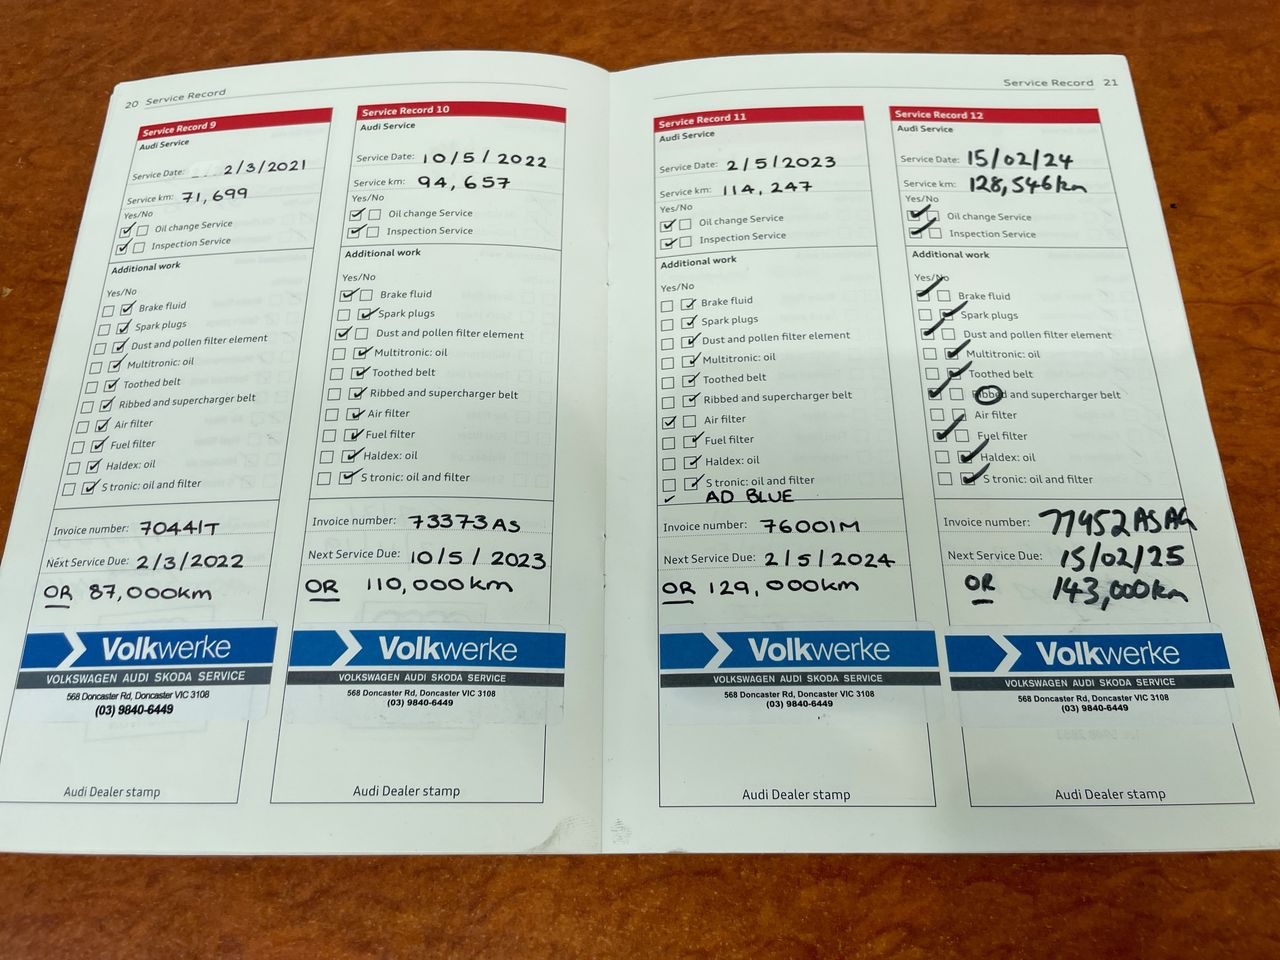 20 Service Record
Service Record 9
Audi Service
Service Date: 2/3/2021
Service km: 71,699
Yes/No
Oil change Service
Inspection Service
Additional work
Yes/No
Brake fluid
Spark plugs
Dust and pollen filter element
Multitronic: oil
Toothed belt
Ribbed and supercharger belt
Air filter
Fuel filter
Haldex: oil
S tronic: oil and filter
Invoice number: 70441T
Next Service Due: 2/3/2022
OR 87,000km
Volkwerke
VOLKSWAGEN AUDI SKODA SERVICE
568 Doncaster Rd, Doncaster VIC 3108
(03) 9840-6449
Audi Dealer stamp
Service Record 10
Audi Service
Service Date: 10/5/2022
Service km: 94,657
Yes/No
Oil change Service
Inspection Service
Additional work
Yes/No
Brake fluid
Spark plugs
Dust and pollen filter element
Multitronic: oil
Toothed belt
Ribbed and supercharger belt
Air filter
Fuel filter
Haldex: oil
S tronic: oil and filter
Invoice number: 73373AS
Next Service Due: 10/5/2023
OR 110,000km
Volkwerke
VOLKSWAGEN AUDI SKODA SERVICE
568 Doncaster Rd, Doncaster VIC 3108
(03) 9840-6449
Audi Dealer stamp
Service Record 21
Service Record 11
Audi Service
Service Date: 2/5/2023
Service km: 114,247
Yes/No
Oil change Service
Inspection Service
Additional work
Yes/No
Brake fluid
Spark plugs
Dust and pollen filter element
Multitronic: oil
Toothed belt
Ribbed and supercharger belt
Air filter
Fuel filter
Haldex: oil
S tronic: oil and filter
AD BLUE
Invoice number: 76001M
Next Service Due: 2/5/2024
OR 129,000km
Volkwerke
VOLKSWAGEN AUDI SKODA SERVICE
568 Doncaster Rd, Doncaster VIC 3108
(03) 9840-6449
Audi Dealer stamp
Service Record 12
Audi Service
Service Date: 15/02/24
Service km: 128,546km
Yes/No
Oil change Service
Inspection Service
Additional work
Yes/No
Brake fluid
Spark plugs
Dust and pollen filter element
Multitronic: oil
Toothed belt
Ribbed and supercharger belt
Air filter
Fuel filter
Haldex: oil
S tronic: oil and filter
Invoice number:
Next Service Due: 15/02/25
OR 143,000km
Volkwerke
VOLKSWAGEN AUDI SKODA SERVICE
568 Doncaster Rd, Doncaster VIC 3108
(03) 9840-6449
Audi Dealer stamp